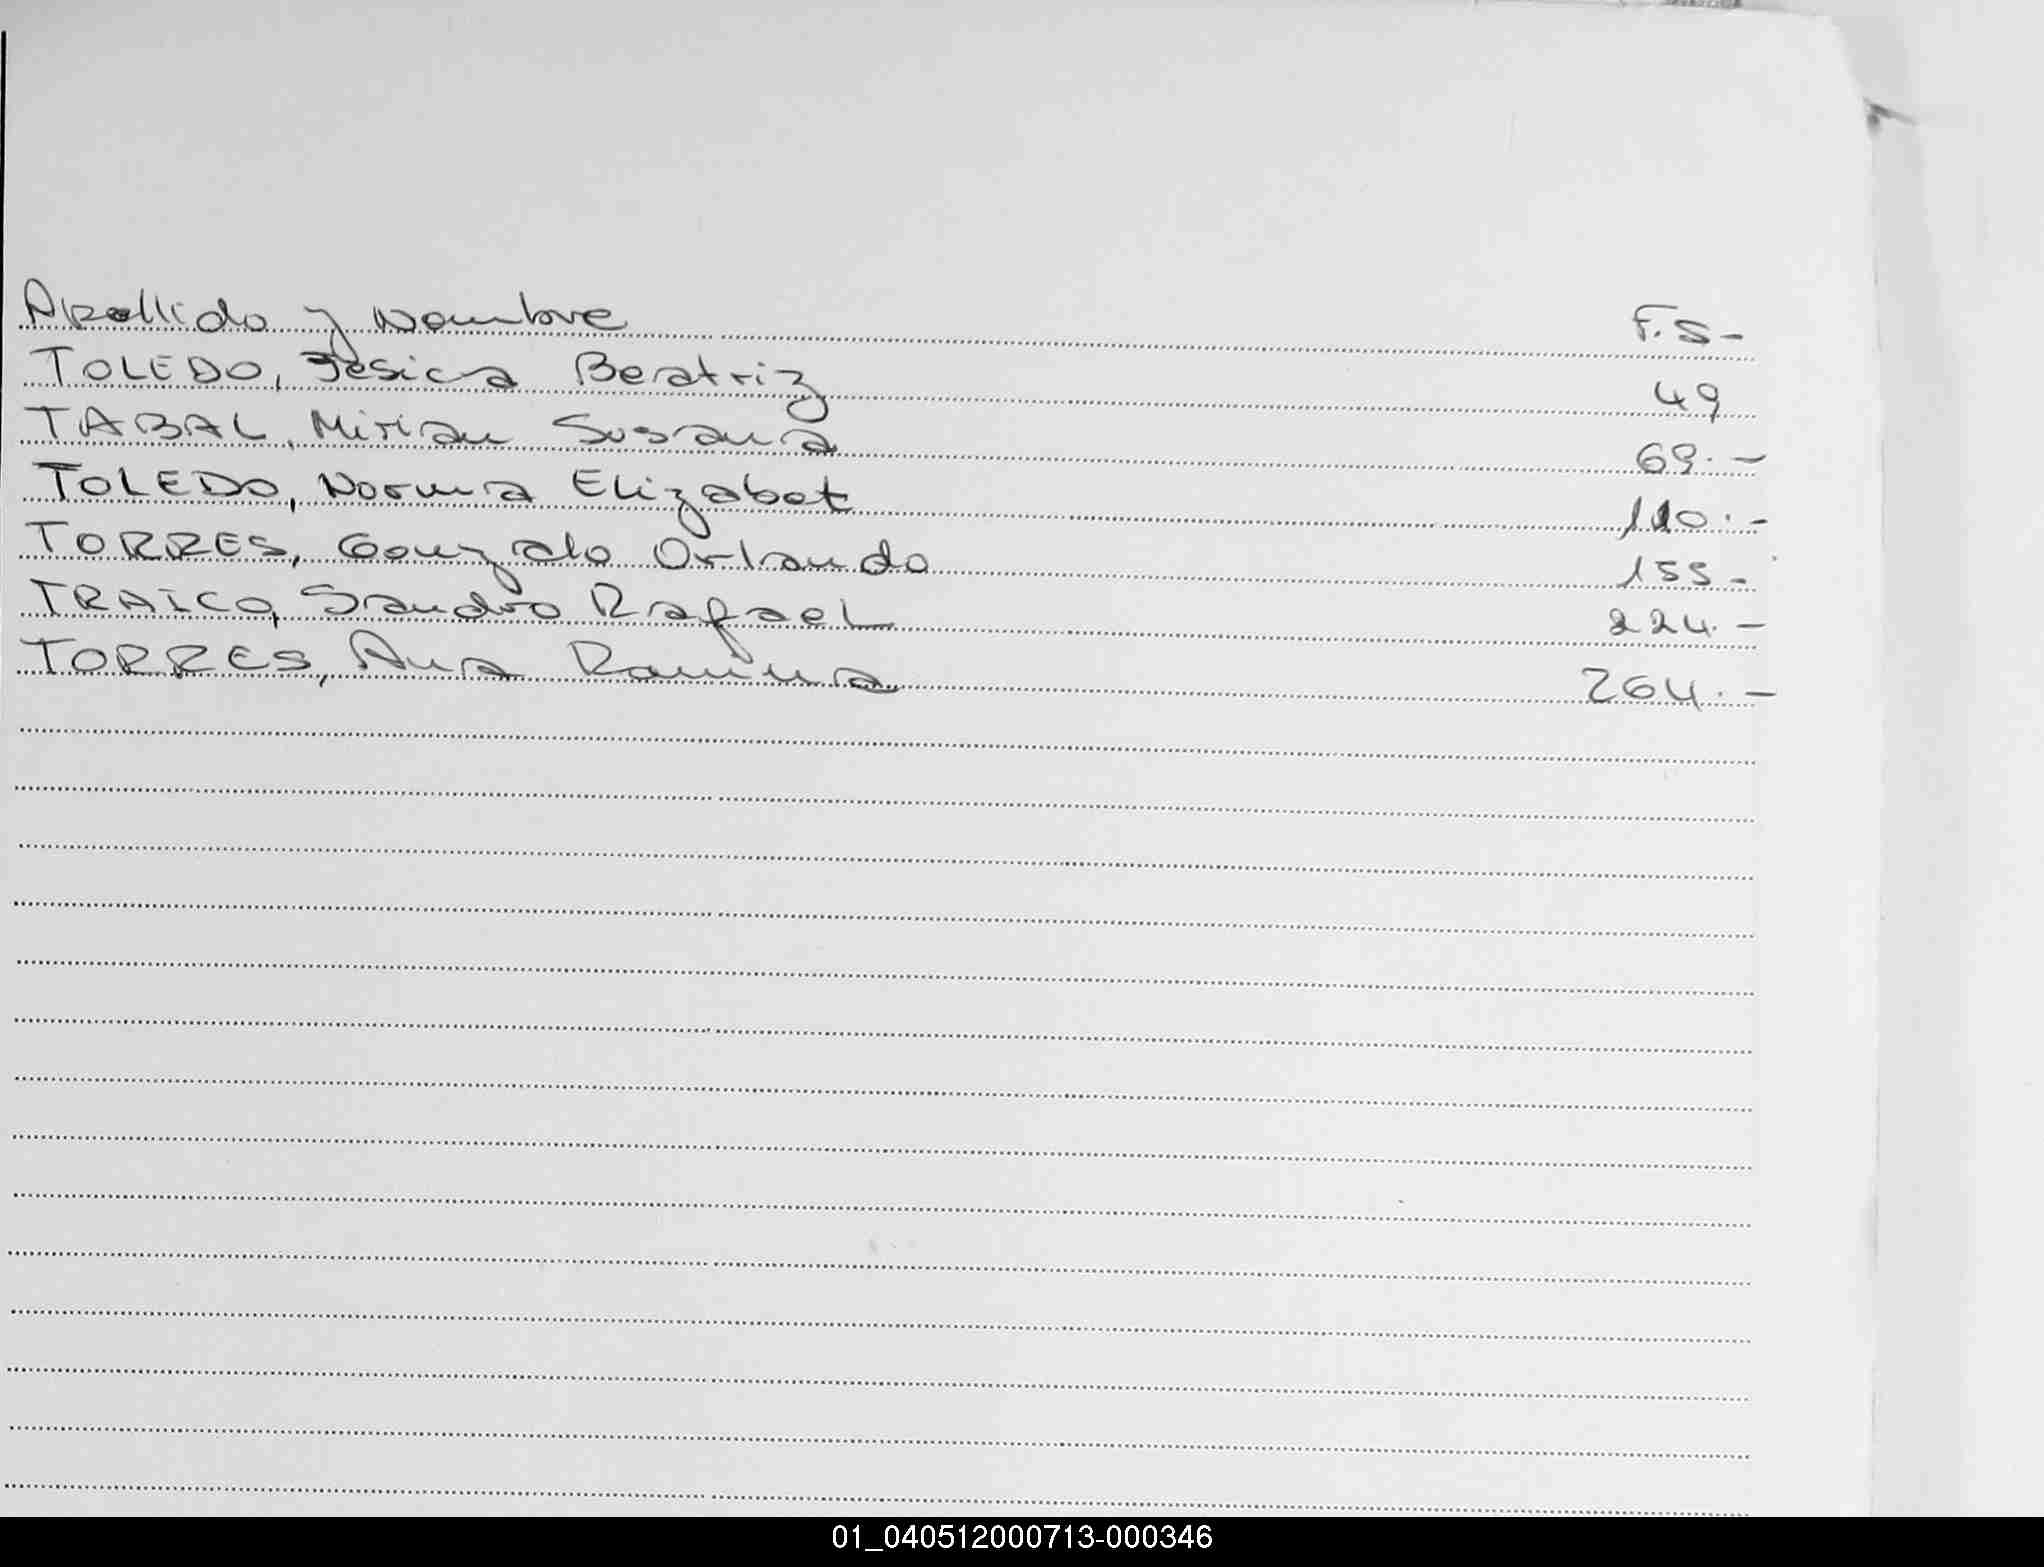 Apellido y Nombre F.S-
TOLEDO, Jesica Beatriz 49
TABAL, Mirian Susana 69.-
TOLEDO, Norma Elizabet 110.-
TORRES, Gonzalo Orlando 155-
TRAICO, Sandro Rafael 224.-
TORRES, Ana Romina 264.-
01_040512000713-000346